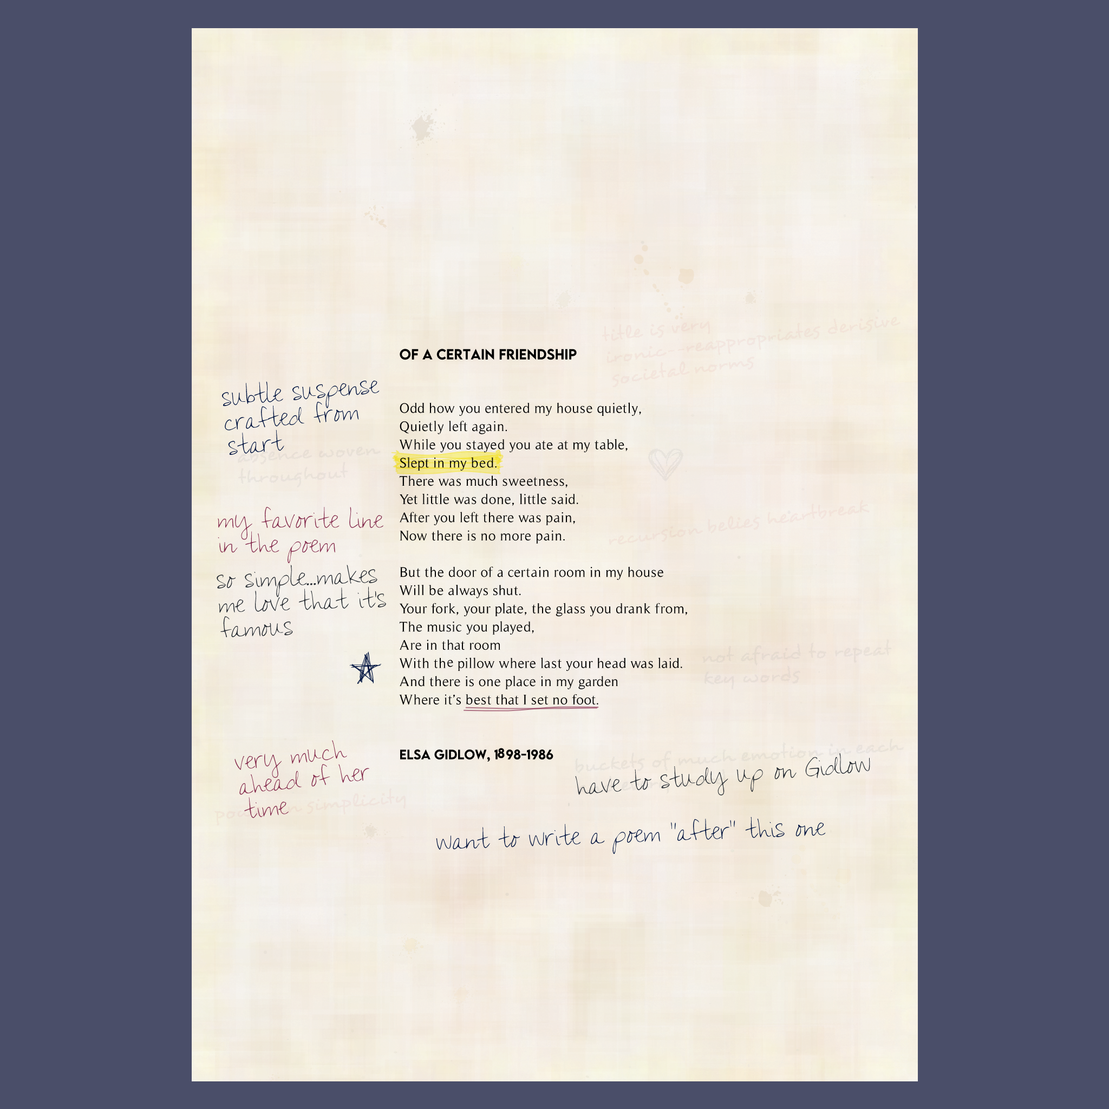 title is very
ironic--reappropriates derisive
societal norms
OF A CERTAIN FRIENDSHIP
subtle suspense
crafted from
start
absence woven
throughout
Odd how you entered my house quietly,
Quietly left again.
While you stayed you ate at my table,
Slept in my bed.
There was much sweetness,
Yet little was done, little said.
After you left there was pain,
Now there is no more pain.
my favorite line
in the poem
recursion belies heartbreak
so simple...makes
me love that it's
famous
But the door of a certain room in my house
Will be always shut.
Your fork, your plate, the glass you drank from,
The music you played,
Are in that room
With the pillow where last your head was laid.
And there is one place in my garden
Where it's best that I set no foot.
not afraid to repeat
key words
ELSA GIDLOW, 1898-1986
very much
ahead of her
time
simplicity
buckets of much emotion in each
have to study up on Gidlow
want to write a poem "after" this one